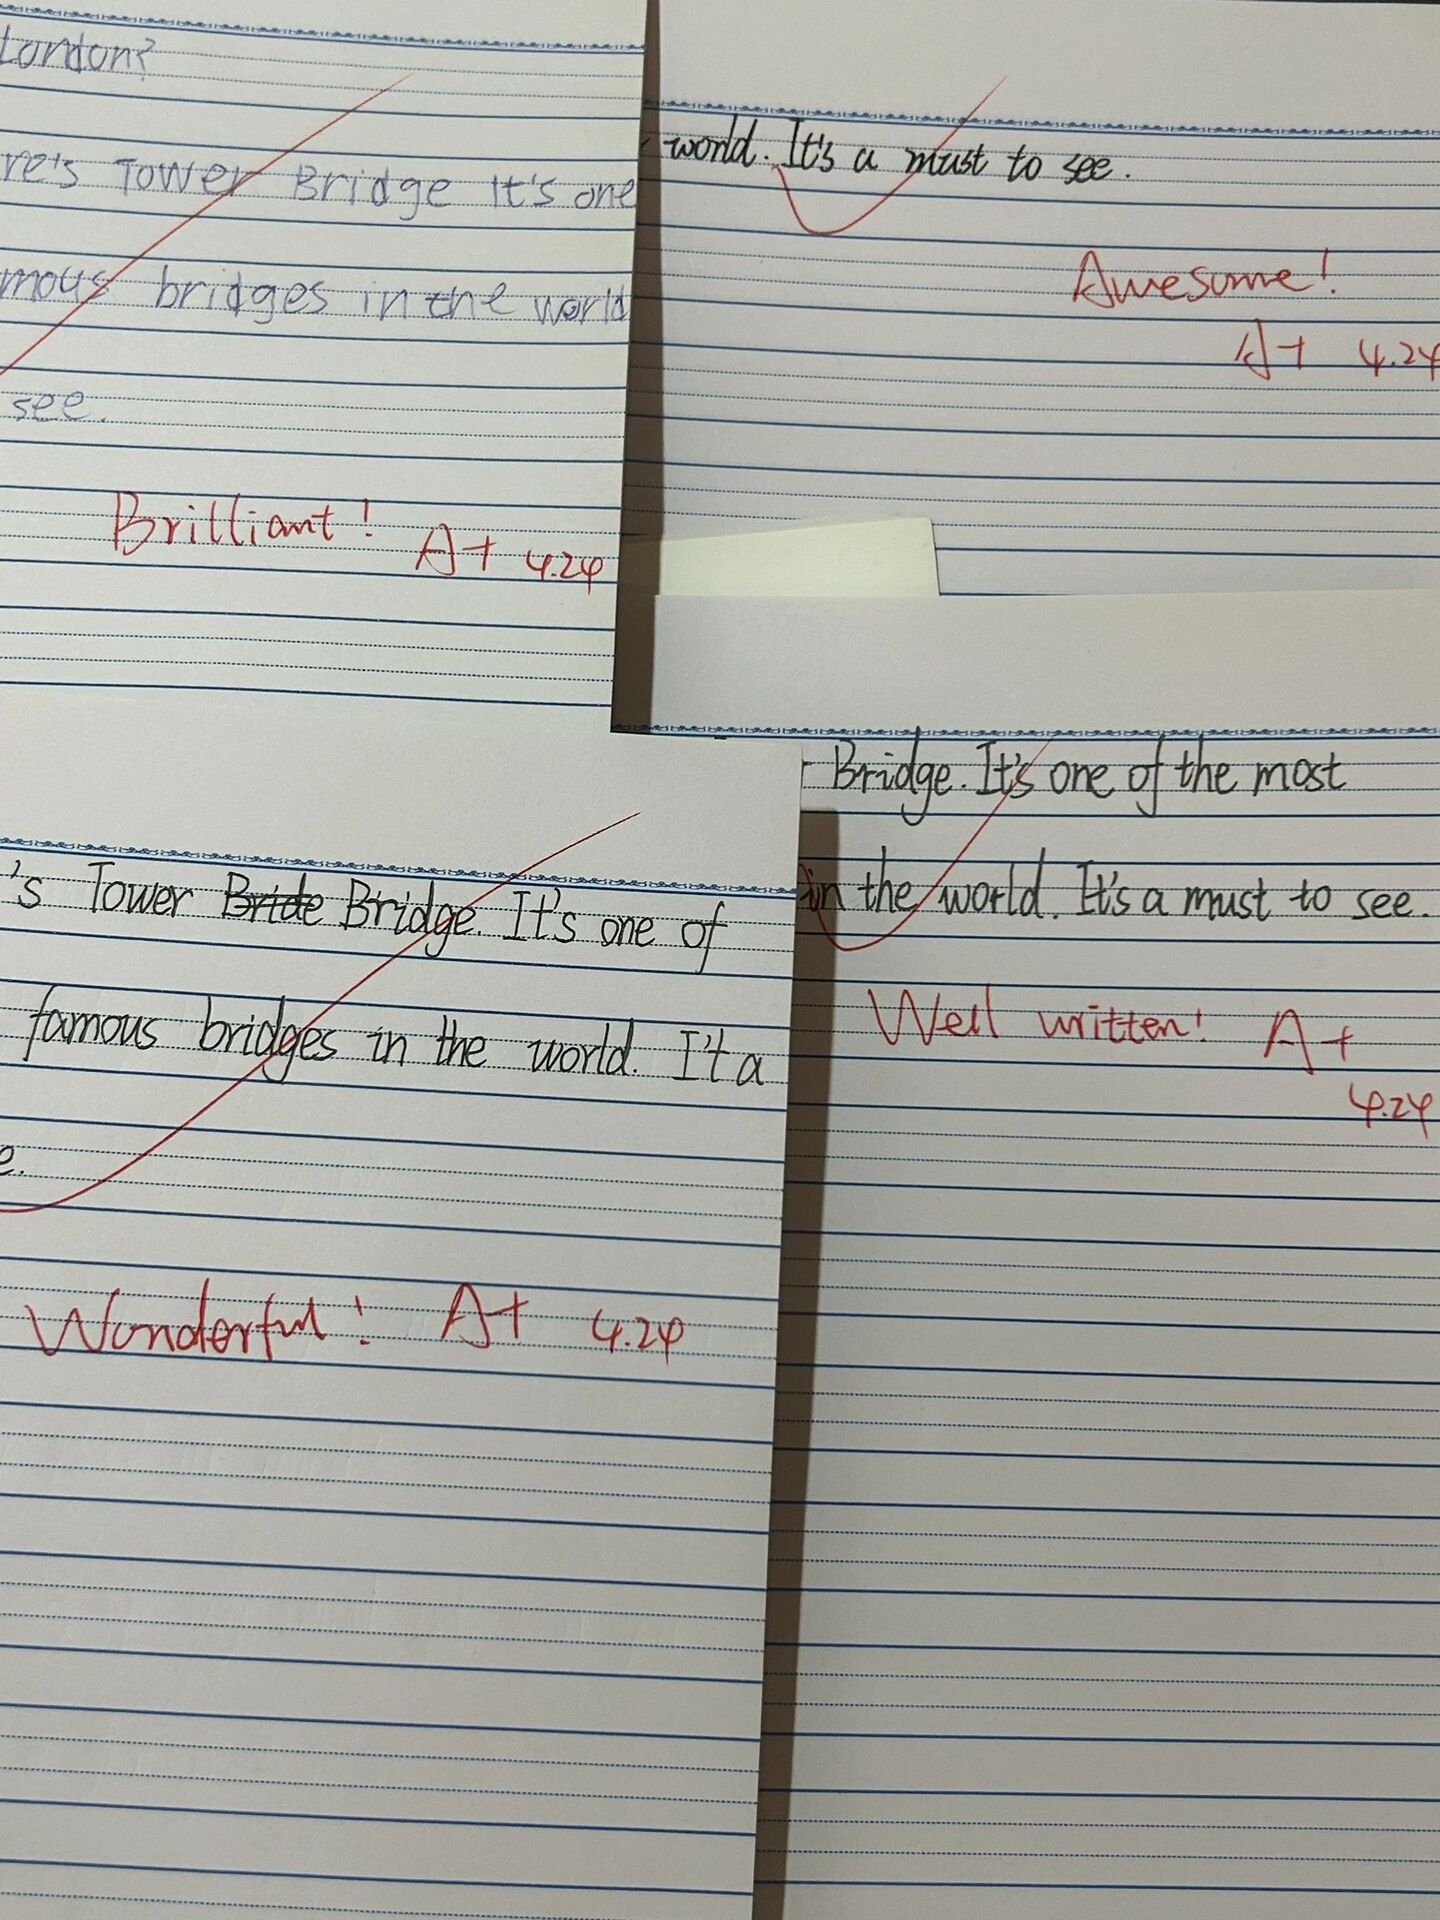 London?
re's Tower Bridge It's one
mous bridges in the world
see.
Brilliant! A+ 4.24
world. It's a must to see.
Awesome!
A+ 4.24
's Tower Bride Bridge. It's one of
famous bridges in the world. I't a
e.
Wonderful! A+ 4.24
Bridge. It's one of the most
in the world. It's a must to see.
Well written! A+
4.24